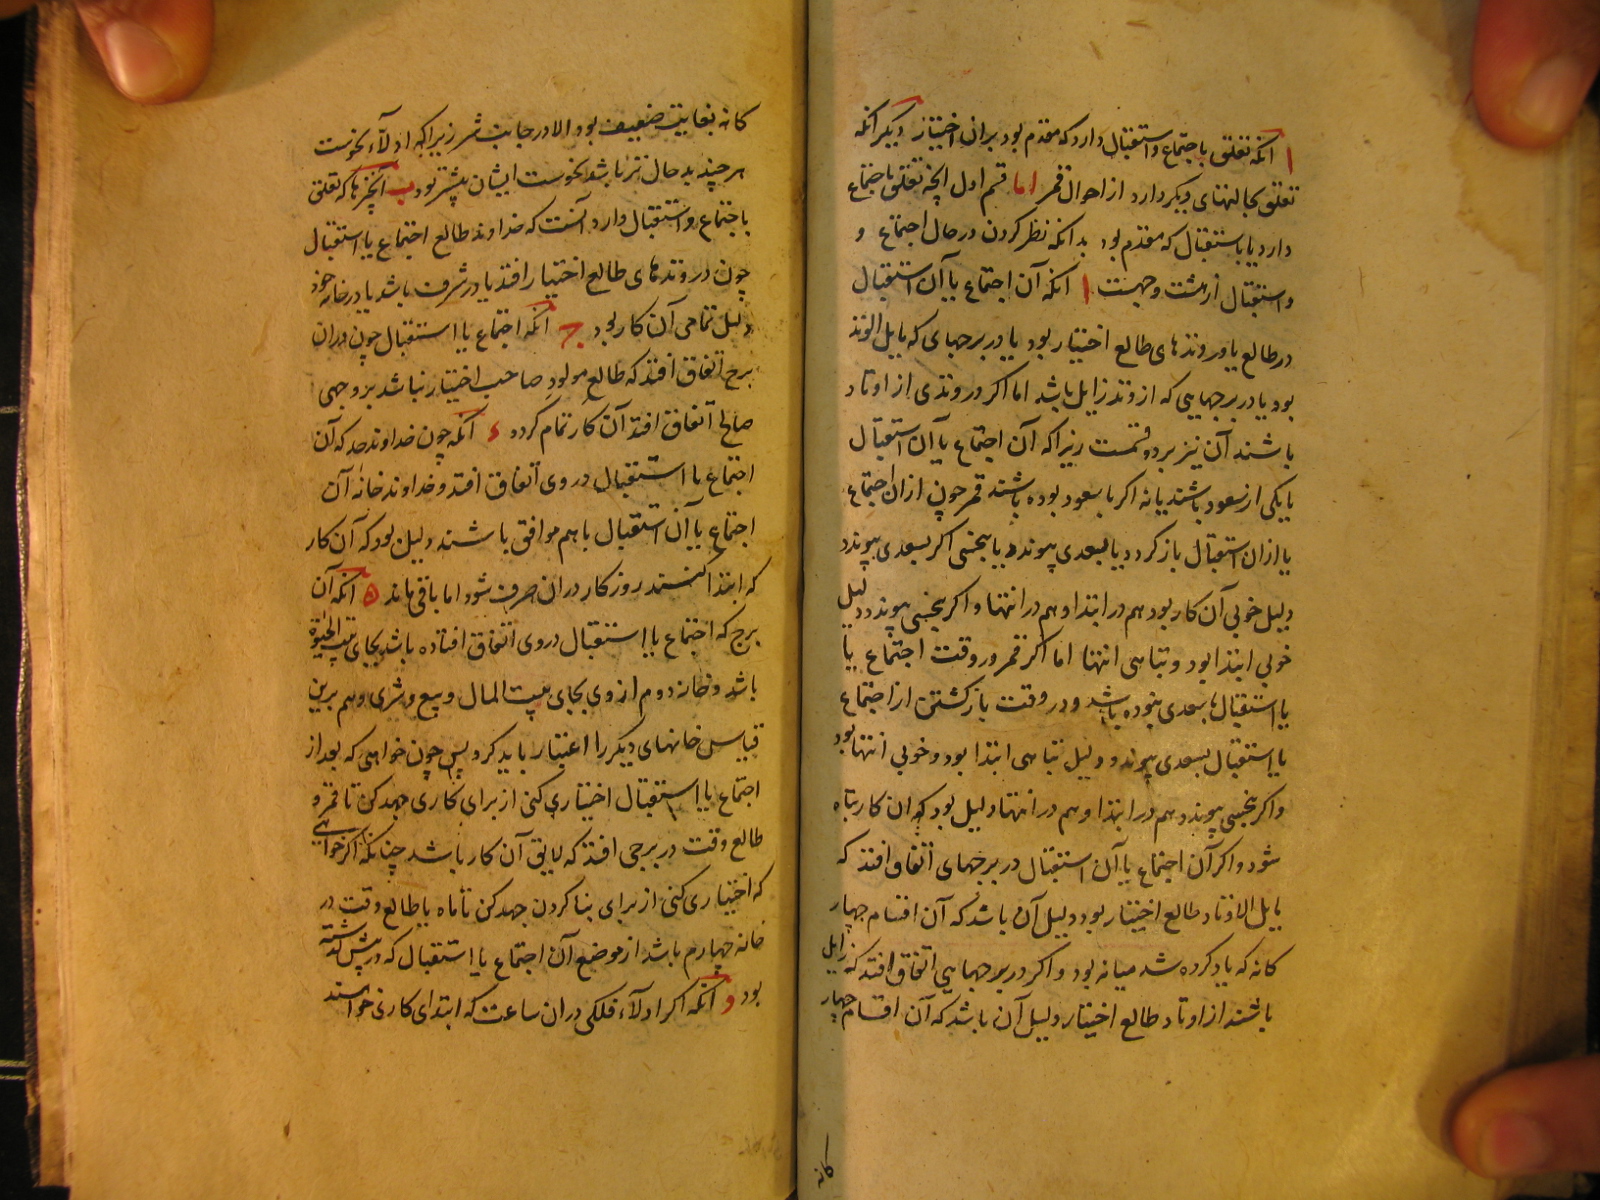 ا آنکه تعلق باجتماع و استقبال دارد که مقدم بود بران اختیار دیگر آنکه
تعلق بحالتهای دیگر دارد از احوال قمر اما قسم اول آنچه تعلق باجتماع
دارد یا باستقبال که مقدم بود بدانکه نظر کردن در حال اجتماع و
و استقبال از هشت وجهست ا آنکه آن اجتماع یا آن استقبال
در طالع یا در وتدهای طالع اختیار بود یا در برجهای که مایل الوتد
بود یا در برجهایی که از وتد زایل باشد اما اکر در وتدی از اوتاد
باشند آن نیز بر دو قسمت زیرا که آن اجتماع یا آن استقبال
با یکی از سعود باشند یا نه اکر با سعود بوده باشند قمر چون از ان اجتماع
یا از ان استقبال باز کردد یا بسعدی پیوندد یا بنحسی اکر بسعدی پیوندد
دلیل خوبی آن کار بود هم در ابتدا و هم در انتها و اکر بنحسی پیوندد دلیل
خوبی ابتدا بود و تباهی انتها اما اکر قمر در وقت اجتماع یا
یا استقبال با سعدی نبوده باشد و در وقت بازکشتن از اجتماع
یا استقبال بسعدی پیوندد دلیل تباهی ابتدا بود و خوبی انتها بود
و اکر بنحسی پیوندد هم در ابتدا و هم در انتها دلیل بود که ان کار تباه
شود و اکر آن اجتماع یا آن استقبال در برجهای اتفاق افتد که
مایل الاوتاد طالع اختیار بود دلیل آن باشد که آن اقسام چهار
کانه که یاد کرده شد میانه بود و اکر در برجهایی اتفاق افتد که زایل
باشند از اوتاد طالع اختیار دلیل آن باشد که آن اقسام چهار
کانه
کانه بغایت ضعیف بود الا در جانب شر زیرا که ادلاء نحوست
هر چند بد حال تر باشد نحوست ایشان بیشتر بود ب آنچیزها که تعلق
باجتماع و استقبال دارد آنست که خداوند طالع اجتماع یا استقبال
چون در وتدهای طالع اختیار افتد یا در شرف باشد یا در خانه خود
دلیل تمامی آن کار بود ج آنکه اجتماع یا استقبال چون در ان
برج اتفاق افتد که طالع مولود صاحب اختیار باشد بر وجهی
صالح اتفاق افتد آن کار تمام کردد د آنکه چون خداوند حد که آن
اجتماع یا استقبال در وی اتفاق افتد و خداوند خانه آن
اجتماع یا آن استقبال با هم موافق باشند دلیل بود که آن کار
که ابتدا کنند روزکار دران صرف شود اما باقی ماند ه آنکه آن
برج که اجتماع یا استقبال در وی اتفاق افتاده باشد بجای بیت الحیوة
باشد و خانه دوم از وی بجای بیت المال و بیع و شری و هم برین
قیاس خانهای دیکر را اعتبار باید کرد پس چون خواهی که بعد از
اجتماع یا استقبال اختیاری کنی از برای کاری جهد کن تا قمر و
طالع وقت در برجی افتد که لایق آن کار باشد چنانکه اکر خواهی
که اختیاری کنی از برای بنا کردن جهد کن تا ماه یا طالع وقت در
خانه چهارم باشد از موضع آن اجتماع یا استقبال که در پیش کذشته
بود و آنکه اکر ادلاء فلکی دران ساعت که ابتدای کاری خواهند